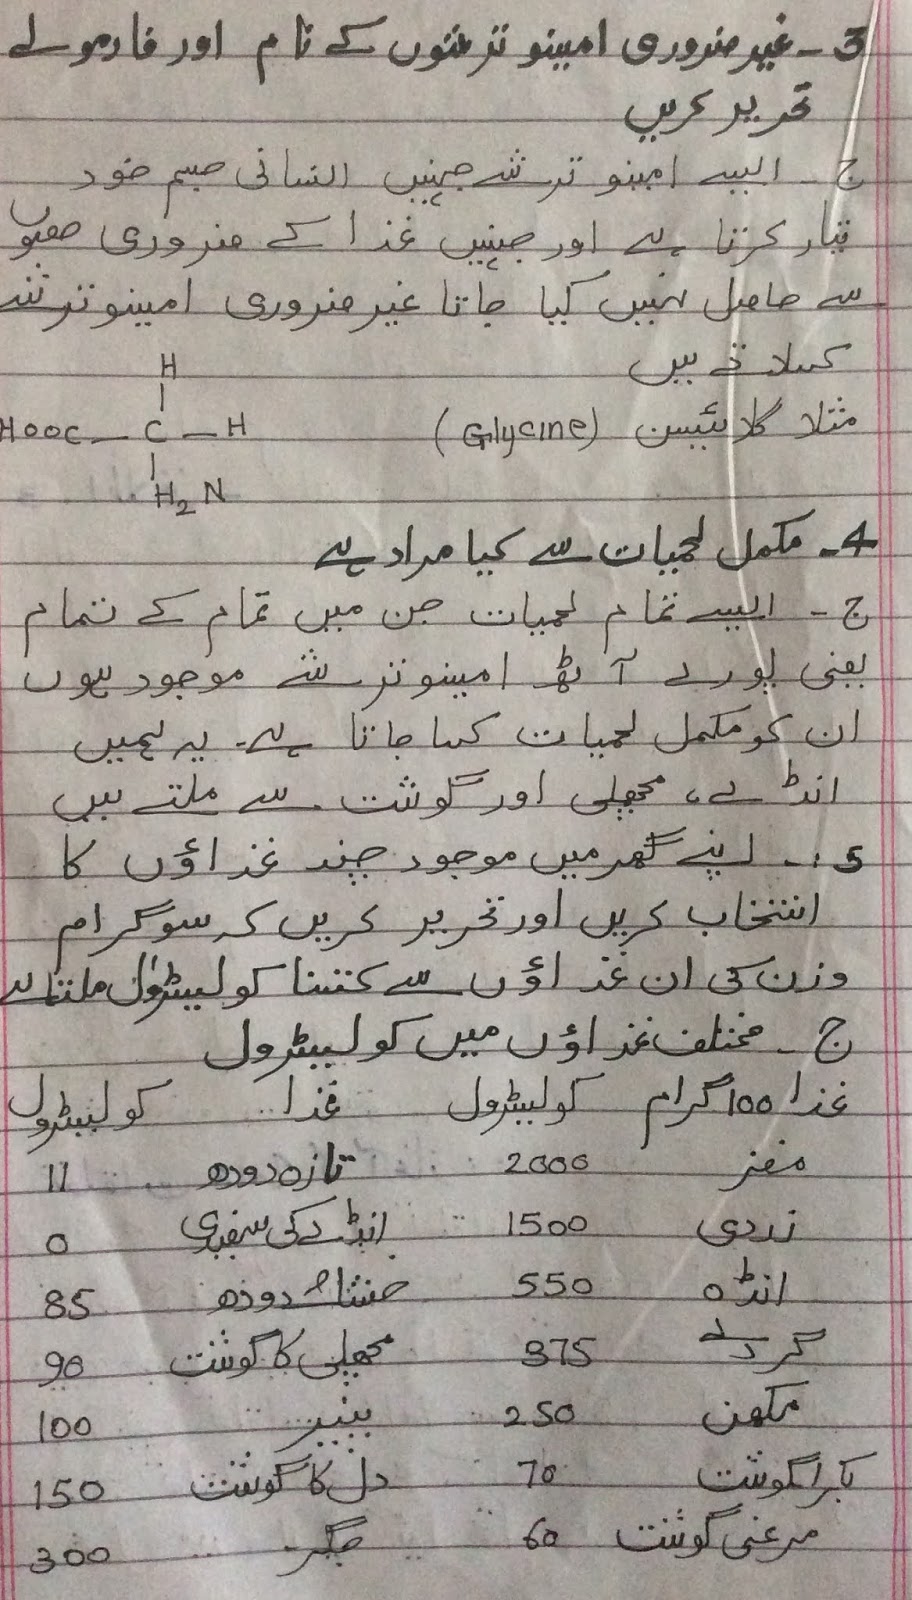 3- غیر ضروری امینو ترشوں کے نام اور فارمولے
تحریر کریں
ج - ایسے امینو ترشے جنہیں انسانی جسم خود
تیار کرتا ہے اور جنہیں غذا کے ضروری حصوں
سے حاصل نہیں کیا جاتا غیر ضروری امینو ترشے
کہلاتے ہیں
H
مثلا گلائیسن (Glycine) HOOC - C - H
H2N
4- مکمل لحمیات سے کیا مراد ہے
ج - ایسے تمام لحمیات جن میں تمام کے تمام
یعنی پورے آٹھ امینو ترشے موجود ہوں
ان کو مکمل لحمیات کہا جاتا ہے۔ یہ ہمیں
انڈے، مچھلی اور گوشت سے ملتے ہیں
5- اپنے گھر میں موجود چند غذاؤں کا
انتخاب کریں اور تحریر کریں کہ سو گرام
وزن کی ان غذاؤں سے کتنا کولیسٹرول ملتا ہے
ج - مختلف غذاؤں میں کولیسٹرول
غذا 100 گرام کولیسٹرول غذا کولیسٹرول
مغز 2000 تازہ دودھ 11
زردی 1500 انڈے کی سفیدی 0
انڈہ 550 خشک دودھ 85
گردے 375 مچھلی کا گوشت 90
مکھن 250 پنیر 100
بکرا گوشت 70 دل کا گوشت 150
مرغی گوشت 60 جگر 300